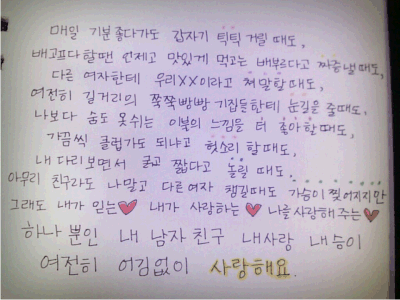 매일 기분좋다가도 갑자기 틱틱 거릴때도,
배고프다할땐 언제고 맛있게 먹고는 배부르다고 짜증낼때도,
다른 여자한테 우리XX이라고 쳐말할때도,
여전히 길거리의 쭉쭉빵빵 기집들한테 눈길을 줄때도,
나보다 숨도 못쉬는 이불의 느낌을 더 좋아할때도,
가끔씩 클럽가도 되냐고 헛소리 할때도,
내 다리보면서 굵고 짧다고 놀릴 때도,
아무리 친구라도 나말고 다른여자 챙길때도 가슴이 찢어지지만
그래도 내가 믿는❤ 내가 사랑하는❤ 나를 사랑해 주는❤
하나 뿐인 내 남자친구 내사랑 내승이
여전히 어김없이 사랑해요.